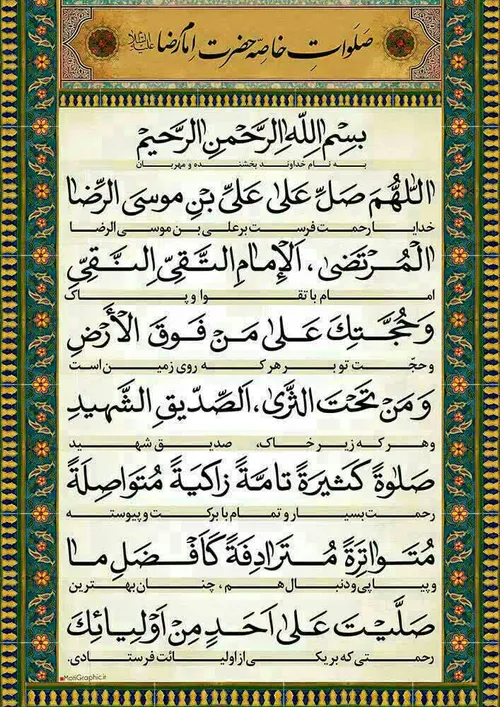 صلوات خاصه حضرت امام رضا علیه السلام
بِسْمِ اللّٰهِ الرَّحْمٰنِ الرَّحیمِ
به نام خداوند بخشنده و مهربان
اَللّٰهُمَّ صَلِّ عَلیٰ عَلِیِّ بْنِ موسَی الرِّضَا
خدایا رحمت فرست بر علی بن موسی الرضا
الْمُرْتَضیٰ، اَلْاِمامِ التَّقِیِّ النَّقِیِّ
امام با تقوا و پاک
وَ حُجَّتِكَ عَلیٰ مَنْ فَوقَ الْأَرْضِ
و حجّت تو بر هر که روی زمین است
وَ مَنْ تَحْتَ الثَّریٰ، اَلصِّدّیقِ الشَّهیدِ
و هر که زیر خاک، صدیق شهید
صَلٰوةً كَثیرَةً تامَّةً زاكِیَةً مُتَواصِلَةً
رحمت بسیار و تمام با برکت و پیوسته
مُتَواتِرَةً مُتَرادِفَةً كَاَفْضَلِ ما
و پیاپی و دنبال هم، چنان بهترین
صَلَّیْتَ عَلیٰ اَحَدٍ مِنْ اَوْلِیائِكَ
رحمتی که بر یکی از اولیائت فرستادی.
MofiGraphic.ir